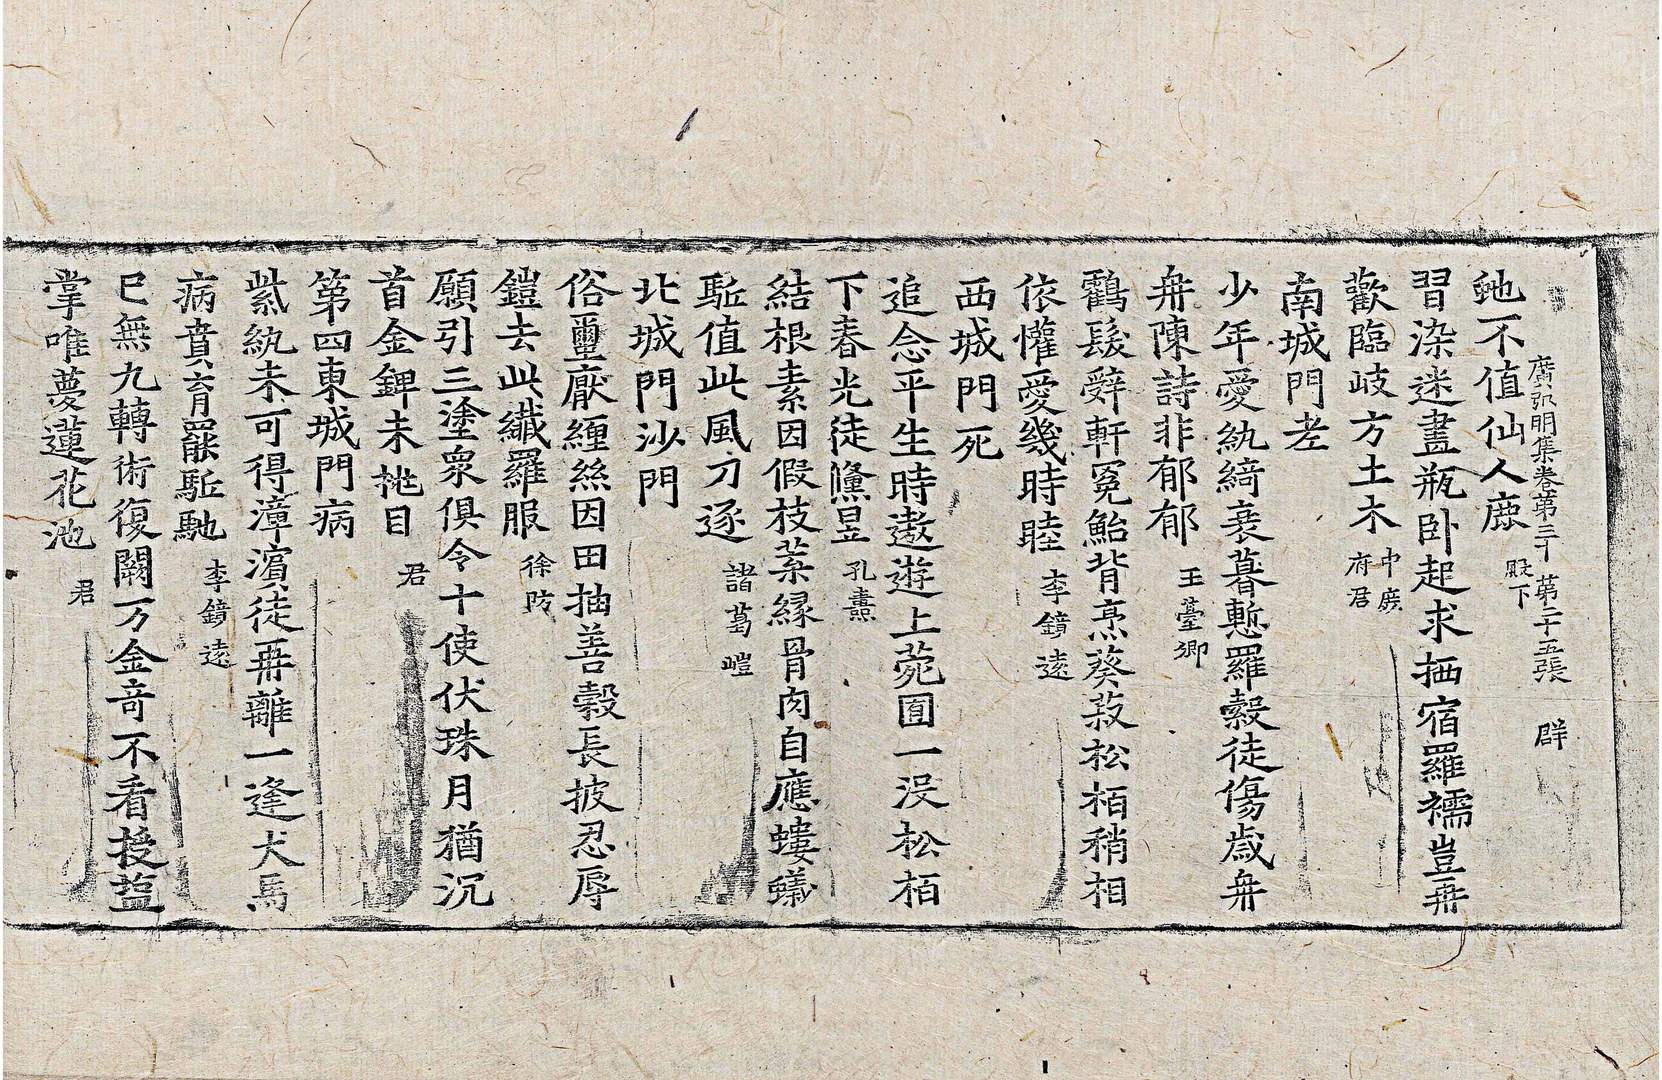 廣弘明集卷第三十 第二十五張 群
虵不值仙人鹿 殿下
習染迷盡瓶卧起求栖宿羅襦豈再
歡臨岐方土木 中庶府君
南城門老
少年愛紈綺衰暮慙羅縠徒傷歲冉
冉陳詩非郁郁 王臺卿
鸛髮辤軒冕鮐背烹葵菽松栢稍相
依懽愛幾時睦 李鏡遠
西城門死
追念平生時遨遊上菀囿一没松栢
下春光徒儵昱 孔燾
結根素因假枝葉緣骨肉自應螻蟻
駈值此風刀逐 諸葛嵦
北城門沙門
俗璽厭纏絲因田抽善穀長披忍辱
鎧去此纖羅服 徐防
願引三塗衆俱令十使伏珠月猶沉
首金錍未挑目 君
第四東城門病
紫紈未可得漳濱徒再離一逢犬馬
病賁育罷駈馳 李鏡遠
已無九轉術復闕万金竒不看授藍
掌唯夢蓮花池 君